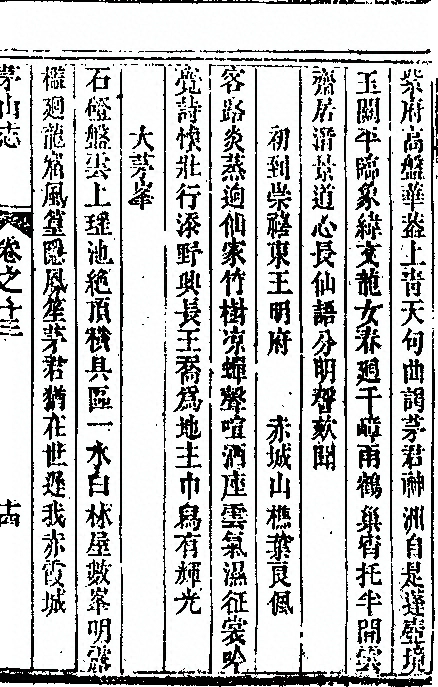 紫府高盤華葢上青天句曲謁茅君神洲自是蓬壺境
玉關平臨象緯文龍女春廻千嶂雨鶴巢宿托半間雲
齋居潛景道心長仙語分明督欬聞
初到崇禧東王明府 赤城山樵葉良佩
客路炎蒸逈仙家竹樹凉蟬聲喧酒座雲氣濕征裳吟
覺詩懷壯行添野興長王喬爲地主巾舄有輝光
大茅峯
石磴盤雲上瑤池絶頂積具區一水白林屋數峯明露
檻廻龍窟風篁隱鳳笙茅君猶在世遲我赤霞城
茅山志 卷之十三 十四